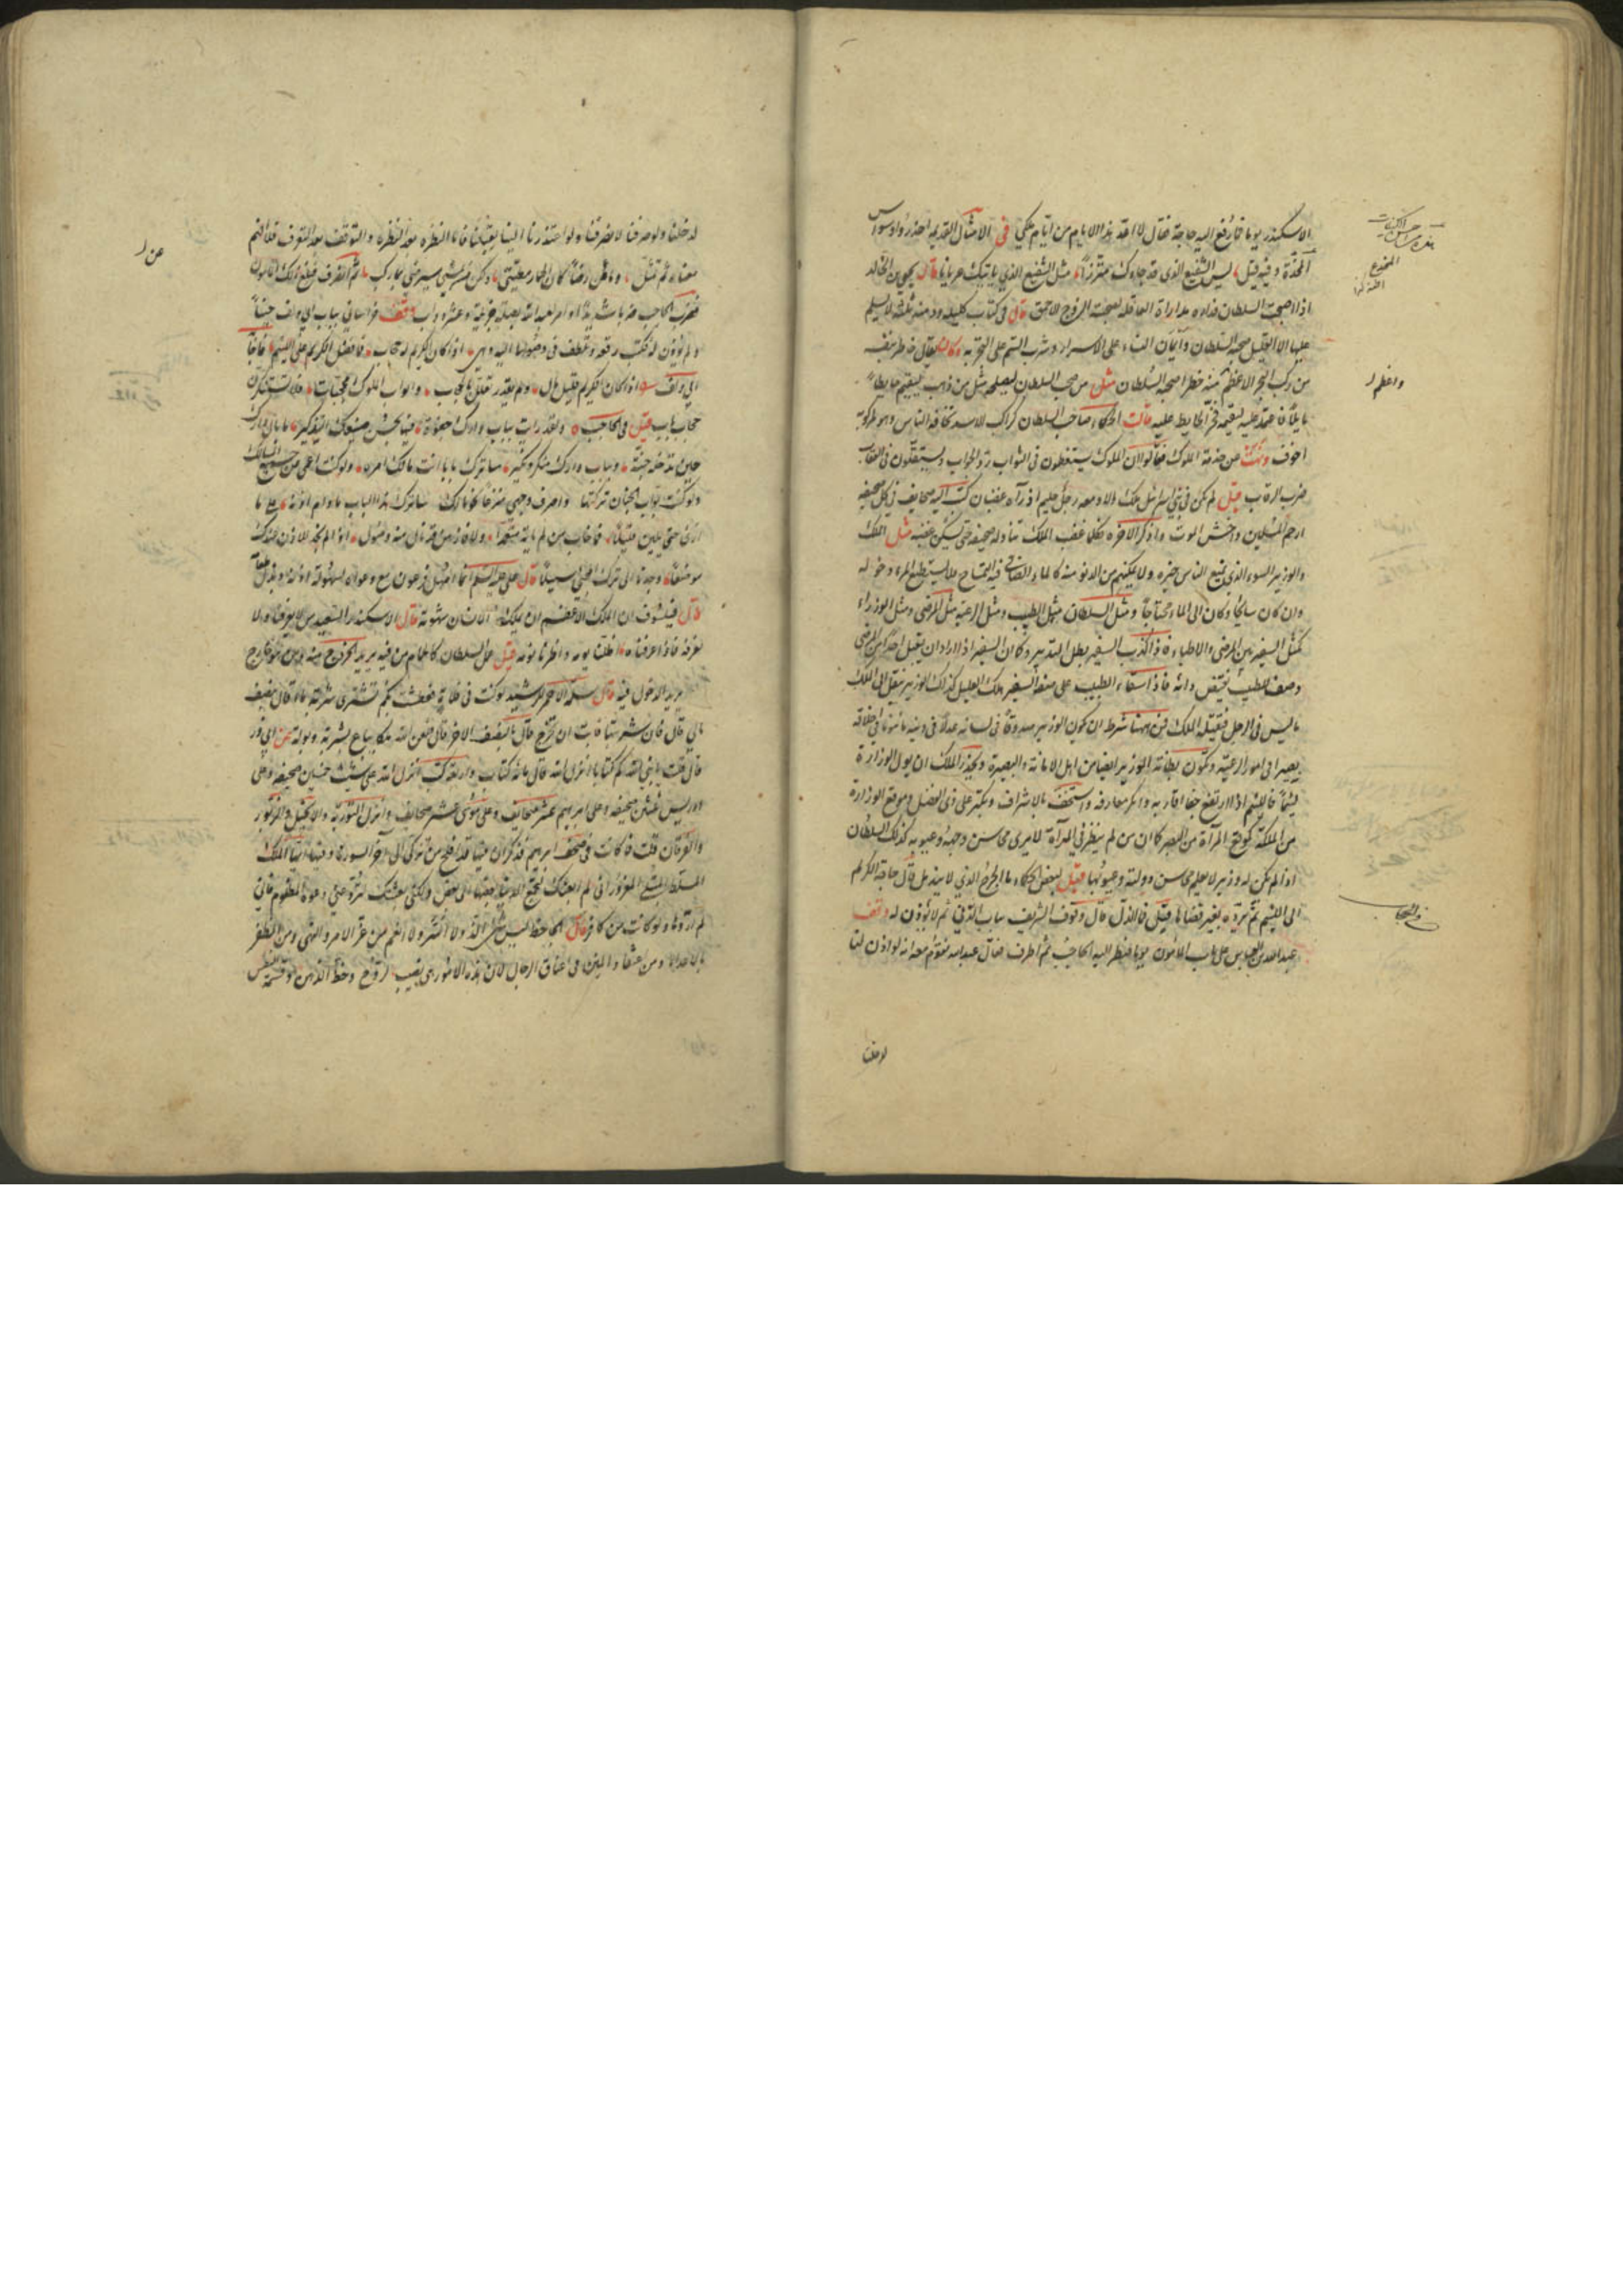 الاسكندر يوما فما رفع اليه حاجة فقال لا اعد هذا الايام من ايام ملكي في الامثال القديمة احذروا دوس
المخدة وفيه قيل ليس الشفيع الذي قد جاءك متزرا مثل الشفيع الذي ياتيك عريانا قال يحيى بن خالد
اذا صحبت السلطان فداره مداراة العاقلة لصحبة الزوج الاحمق قال في كتاب كليلة ودمنة ثلثة لا يسلم
عليها الا القليل صحبة السلطان وايتمان النساء على الاسرار وشرب السم على التجربة وكان يقال خاطر بنفسه
من ركب البحر الاعظم منه خطرا صحبة السلطان مثل من صحب السلطان ليصلحه مثل من ذهب ليقيم حايطا
مايلا فاعتمد عليه ليقيمه فخر الحايط عليه قالت الحكماء صاحب السلطان كراكب الاسد تخافه الناس وهو لمركوبه
اخوف من خدمة الملوك فقالوا لان الملوك يستعظمون في الثواب رد الجواب ويستقلون في العقاب
ضرب الرقاب قيل لم يكن في بني اسرائيل ملك الا ومعه رجل حكيم اذا رآه غضبان كتب اليه صحايف في كل صحيفة
ارحم المسكين واخش الموت واذكر الآخرة فكلما غضب الملك ناوله صحيفة حتى يسكن غضبه مثل الملك
والوزير السوء الذي يمنع الناس خيره ولا يمكنهم من الدنو منه كالماء الصافي فيه التمساح فلا يستطيع المرء دخوله
وان كان سابحا وكان الى الماء محتاجا ومثل السلطان مثل الطبيب ومثل الرعية مثل المرضى ومثل الوزراء
كمثل السفير بين المرضى والاطباء فاذا كذب السفير بطل التدبير وكما ان السفير اذا اراد ان يقتل احدا من المرضى
وصف للطبيب نقيض دائه فاذا سقاه الطبيب على صفة السفير هلك العليل كذلك الوزير ينقل الى الملك
ما ليس في الرجل فيقتله الملك فمن ههنا شرط ان يكون الوزير صدوقا في لسانه عدلا في دينه مامونا في اخلاقه
بصيرا في امور الرعية وتكون بطانة الوزير ايضا من اهل الامانة والبصيرة وليحذر الملك ان يولي الوزارة
لئيما فاللئيم اذا ارتفع جفا اقاربه وانكر معارفه واستخف بالاشراف وتكبر على ذي الفضل وموقع الوزارة
من المملكة كموقع المرآة من البصر كما ان من لم ينظر في المرآة لا يرى محاسن وجهه وعيوبه كذلك السلطان
اذا لم يكن له وزير لا يعلم محاسن دولته وعيوبها قيل لبعض الحكماء ما الجرح الذي لا يندمل قال حاجة الكريم
الى اللئيم ثم يرده بغير قضائها قيل فما الذل قال وقوف الشريف بباب الدني ثم لا يؤذن له وقف
عبد الله بن العباس على باب المامون يوما فنظر اليه الحاجب ثم اطرق فقال عبد الله لقوم معه انه لو اذن لنا
لدخلنا
واعلم
لدخلنا ولو صرفنا لانصرفنا ولو اعتذر الينا لقبلنا فاما النظرة بعد النظرة والتوقف بعد التعرف فلا افهم
معناه ثم تمثل وما عن رضا كان الحمار مطيتي ولكن من يمشي سيرضى بما ركب ثم انصرف فبلغ ذلك المامون
فضرب الحاجب ضربا شديدا وامر لعبد الله بصلة جزيلة وعشر دواب وقف خراساني بباب ابي دلف حينا
ولم يؤذن له فكتب رقعة وتلطف في وصولها اليه وهي اذا كان الكريم له حجاب فما فضل الكريم على اللئيم فاجابه
ابو دلف اذا كان الكريم قليل مال ولم يعذر تعلل بالحجاب وابواب الملوك محجبات فلا تستنكرن
حجاب بابي قيل في الحاجب ولقد رايت بباب دارك جفوة فيها لحسن صنيعك التكدير ما بال دارك
حين تدخل جنة وبباب دارك منكر ونكير ساترك بابا انت مالك امره ولو كنت اعمى عن جميع المسالك
ولو كنت بواب الجنان تركتها وحولت وجهي مسرعا نحو مالك ساترك هذا الباب ما دام اذنه على ما
ارى حتى يلين قليلا فما خاب من لم ياته متعمدا ولا فاز من قد نال منه وصول اذا لم نجد للاذن عندك
موضعا وجدنا الى ترك المجئ سبيلا قال علي عليه السلام انما امهل فرعون مع دعواه لسهولة اذنه وبذل طعامه
قال فيلسوف ان الملك الاعظم ان يملك الانسان شهوته قال الاسكندر السعيد من لا يعرفنا ولا
نعرفه فاذا عرفناه اطلنا يومه واطرنا نومه قيل مثل السلطان كالحمام من فيه يريد الخروج منه ومن هو خارج
يريد الدخول فيه قال سلم الاحمر للرشيد لو كنت في فلاة فعطشت بكم تشتري شربة ماء قال بنصف
مالي قال فان شربتها فابت ان تخرج قال بالنصف الآخر قال فلعن الله ملكا يباع بشربة وبولة عن ابي ذر
قال قلت يا نبي الله كم كتابا انزل الله قال مائة كتاب واربعة كتب انزل الله على شيث خمسين صحيفة وعلى
ادريس ثلثين صحيفة وعلى ابرهيم عشر صحايف وعلى موسى عشر صحايف وانزل التورية والانجيل والزبور
والفرقان قلت فما كانت في صحف ابرهيم فذكر ان فيها قد افلح من تزكى الى آخر السورة وفيها ايها الملك
المسلط المبتلى المغرور اني لم ابعثك لتجمع الدنيا بعضها الى بعض ولكني بعثتك لترد عني دعوة المظلوم فاني
لم اردها ولو كانت من كافر قال الجاحظ ليس شئ الذ ولا اسر ولا انعم من عز الامر والنهي ومن الظفر
بالاعداء ومن عقد المنن في اعناق الرجال لان هذه الامور هي نصيب الروح وحظ الذهن وقسمة النفس